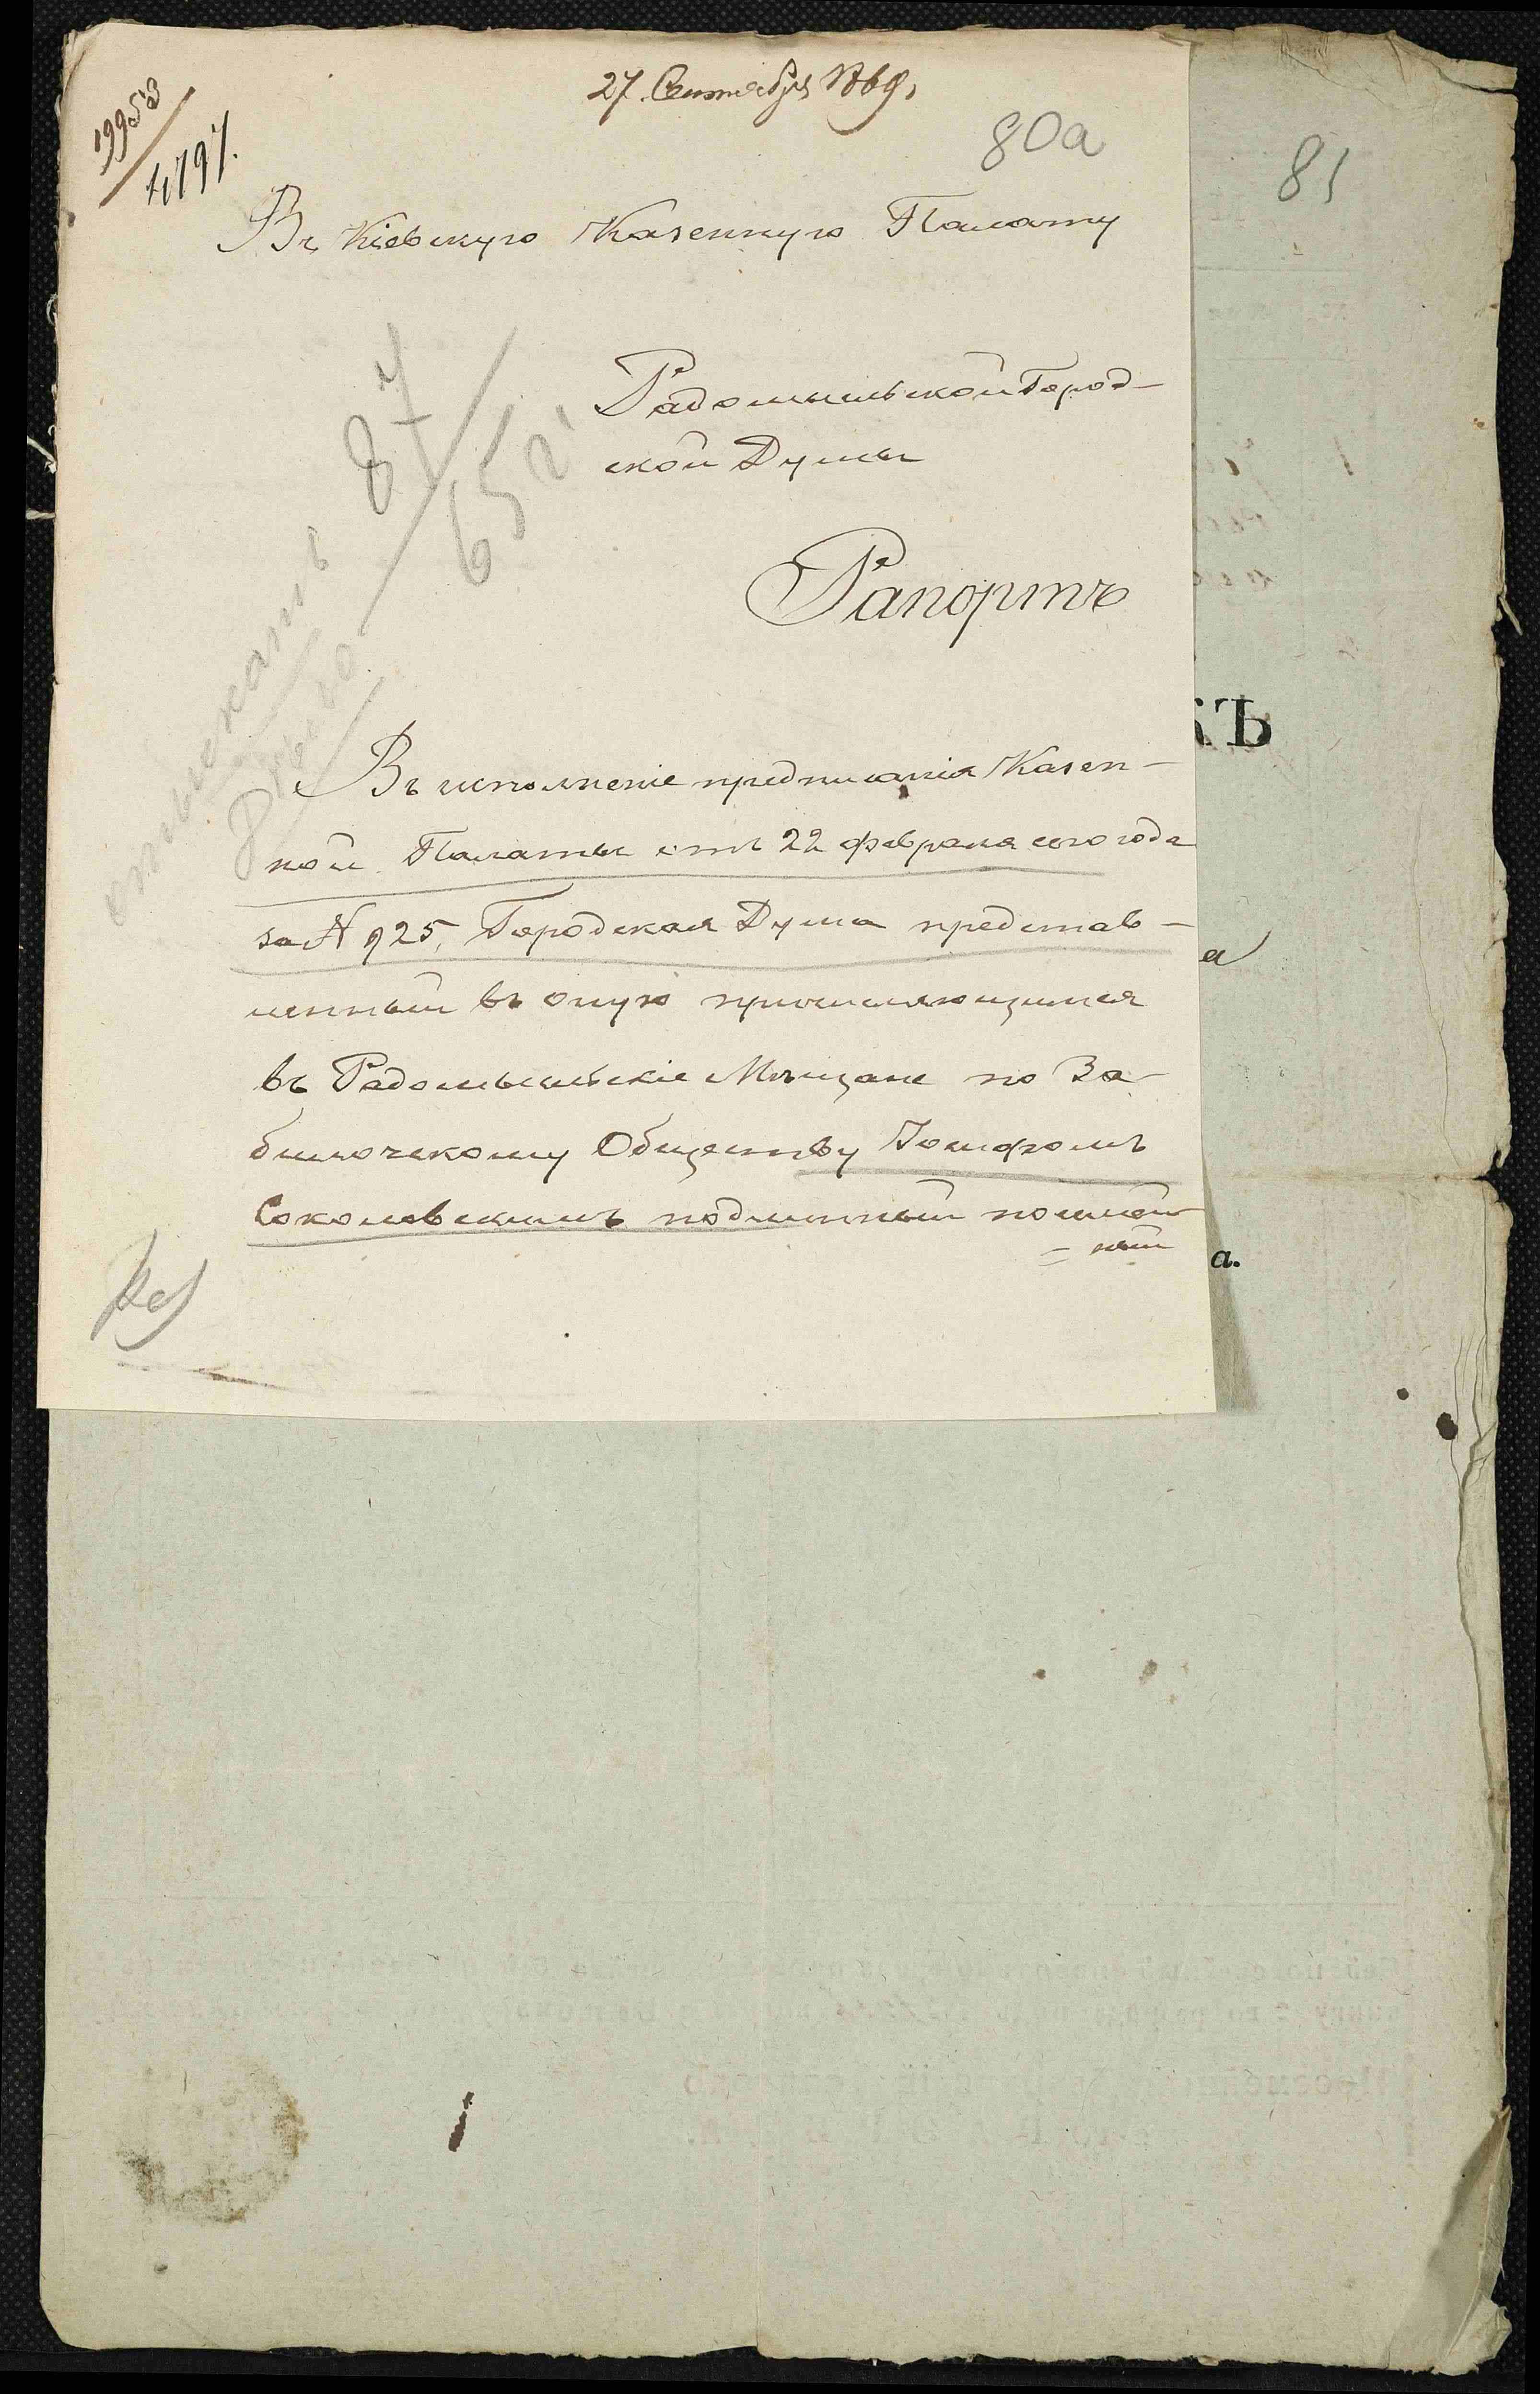 27 Сентября 1869,
19953
4797.
80а
81
Въ Кіевскую Казенную Палату
Радомысльской Город-
ской Думы
87
652
Рапортъ
отыскать
Дѣло
Въ исполненіе предписанія Казен-
ной Палаты отъ 22 февраля сего года
за № 925, Городская Дума представ-
ленный въ оную причисляющимся
въ Радомысльскіе Мѣщане по За-
билочскому Обществу Іосифомъ
Соколовскимъ подлинный посемей-
= ный
КЪ
а
а.